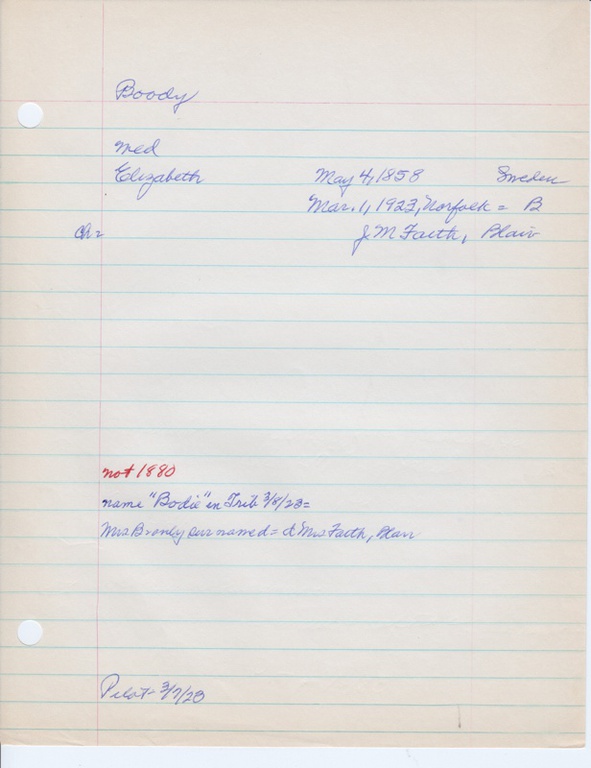 Boody
med
Elizabeth May 4, 1858 Sweden
Mar. 1, 1923, Norfolk = B
Ch = J M Faith, Blair
not 1880
name "Bodie" in Trib 3/8/23 =
Mrs named = d Mrs Faith, Blair
Pilot - 3/7/23